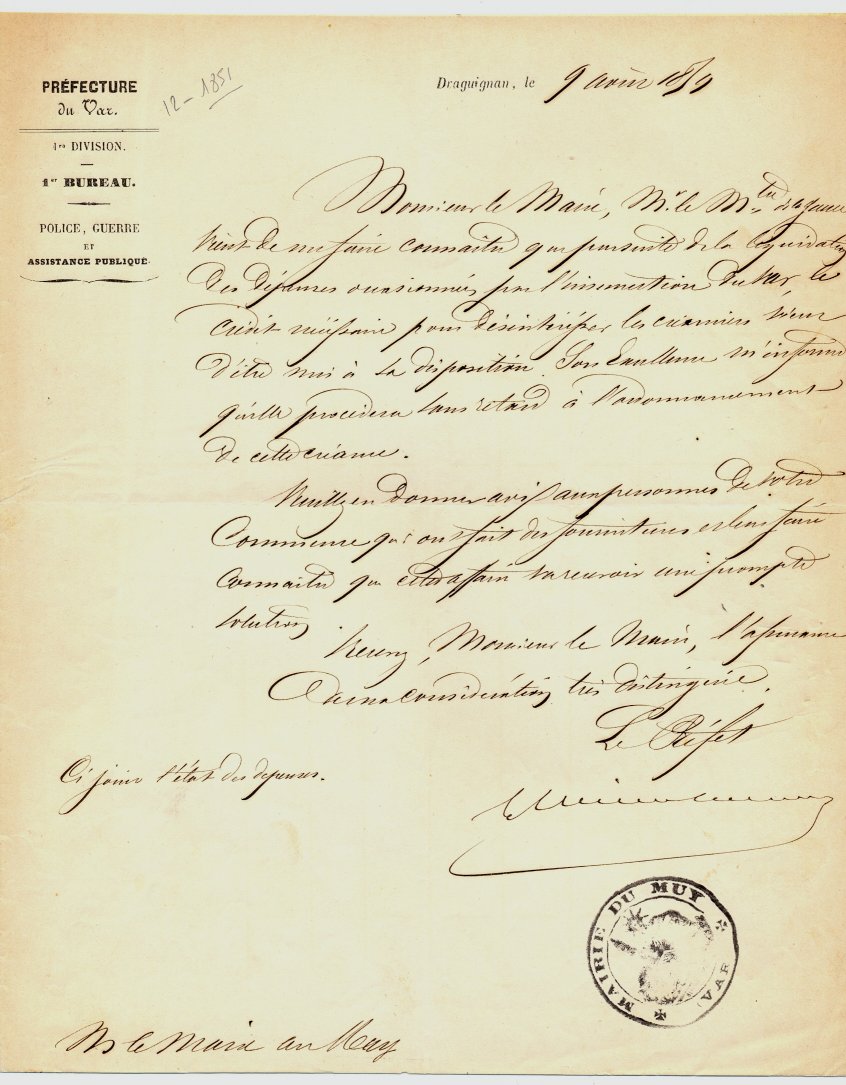 PRÉFECTURE
du Var.
1re DIVISION.
1er BUREAU.
POLICE, GUERRE
ET
ASSISTANCE PUBLIQUE.
12 - 1851
Draguignan, le 9 août 1859
Monsieur le Maire, Mr. le Mtre de la Guerre
vient de me faire connaître que par suite de la liquidation
des dépenses occasionnées par l'insurrection du Var, le
crédit nécessaire pour désintéresser les créanciers vient
d'être mis à sa disposition. Son Excellence m'informe
qu'elle procédera sans retard à l'ordonnancement
de cette créance.
Veuillez en donner avis aux personnes de votre
Commune qui ont fait des fournitures et leur faire
connaître que cette affaire va recevoir une prompte
solution.
Recevez, Monsieur le Maire, l'assurance
de ma considération très distinguée.
Le Préfet
Ci joint l'état des dépenses.
MAIRIE DU MUY
(VAR)
Mr le Maire au Muy